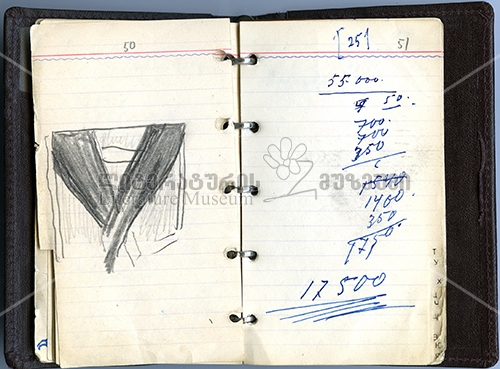 50
[25] 51
55 000.
50.
700.
700
350
1500
1400.
350
1750.
17 500
ლიტერატურის მუზეუმი
Literature Museum